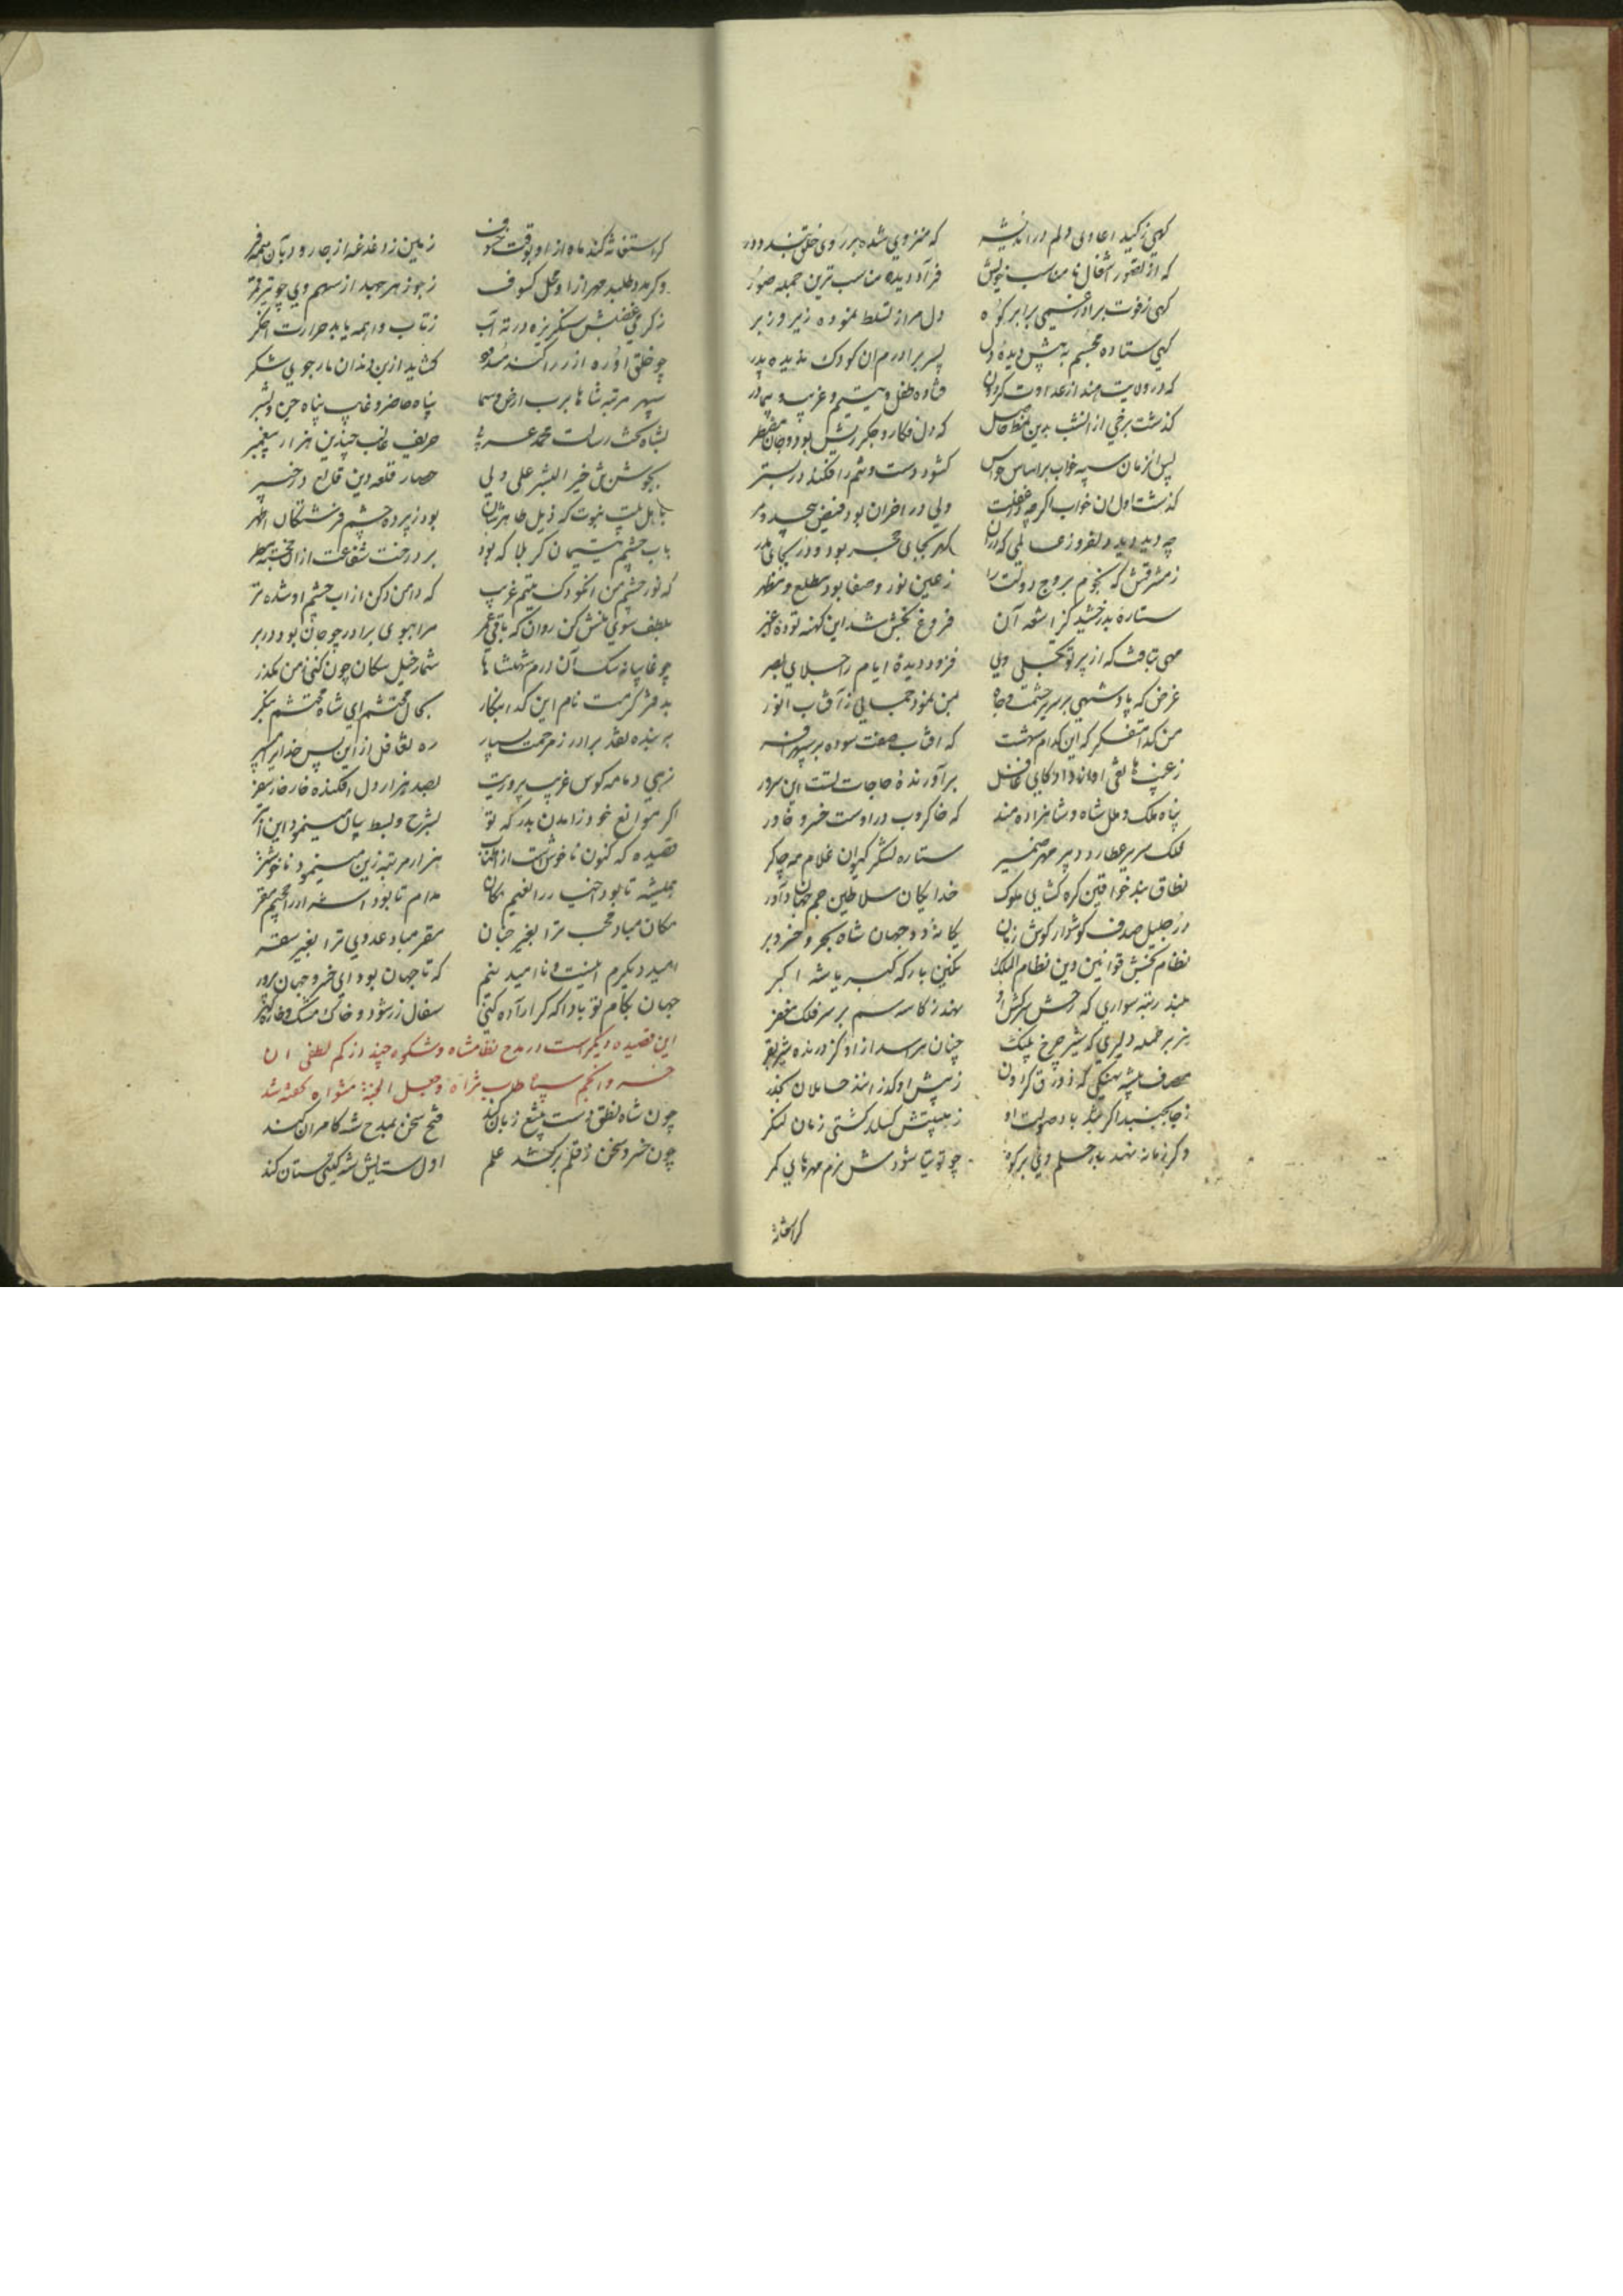 کهی ز کید اعادی دلم در اندیشه که منزوی شده بر روی خلق بندد در
که از تصور اشغال نامناسب خویش فرآد دیده مناسب ترین جمله صور
کهی ز فوت برادر غمی برابر کوه دل مرا ز تسلط نموده زیر و زبر
کهی ستاده مجسم به پیش دیده دل پسر برادرم ان کودک ندیده پدر
که در ولایت هند از عداوت کردون فتاده طفل و یتیم و غریب و بی مادر
کذشت برخی از انشب بدین نمط حاصل که دل فکار و جکر ریش بود و جان مضطر
پس انزمان سپه خواب بر اساس حواس کشود دست و تنم را فکند در بستر
کذشت اول ان خواب اکر چه در غفلت ولی در اخر ان بود فیض بیحد و مر
چه دید دیده دلفروز عالمی که در ان کهر بجای حجر بود و در بجای مدر
ز مشرقش که نجوم بروج دولت را ز عین نور و صفا بود مطلع و مظهر
ستاره بدرخشید کز اشعه آن فروغ بخش شد این کهنه توده اغبر
مهی بتافت که از پرتو تجلی وی فزود دیده ایام را جلای بصر
غرض که پادشهی بر سریر حشمت و جاه بمن نمود جمالی ز آفتاب انور
من کدا متفکر که این کدام شهست که افتاب صفت سوده بر سپهر افسر
ز غیب هاتفی اواز داد کای غافل برآورنده حاجات تست این سرور
پناه ملک و ملل شاه و شاهزاده هند که خاکروب در اوست خسرو خاور
فلک سریر عطارد دبیر مهر ضمیر ستاره لشکر کیوان غلام مه چاکر
نطاق بند خواقین کره کشای ملوک خدایکان سلاطین جم جهان داور
در جلیل صدف کوشوار کوش زمان یکانه دو جهان شاه بحر و خسرو بر
نظام بخش قوانین دین نظام الملک نکین بارکه کبریا شه اکبر
بلند رتبه سواری که رخش سرکش او نهد ز کاسه سم بر سر فلک مغفر
هزبر حمله دلیری که شیر چرخ پلنک چنان هراسد ازو کز درنده شیر بقر
مصاف بیشه نهنکی که زورق کردون ز پیش او کذرانند حاملان بحذر
ز جا بجنبد اکر تند باد صولت او ز هیبتش کسلد کشتی زمان لنکر
وکر زمانه نهد بار حلم وی بر کوه چو توتیا شودش نرم مهره‌های کمر
کر استغاثه
کر استغاثه کند ماه ازو بوقت خسوف زمین ز دغدغه از جا رود بآن همه فر
وکر مدد طلبد مهر ازو محل کسوف ز جوزهر جهد از سهم وی چو تیر قمر
ز کرمی غضبش سنکریزه در ته آب ز تاب واهمه یابد حرارت اخکر
چو خلق او ره ازرم را کند مسدود کشاید از بن دندان مار جوی شکر
سپهر مرتبه شاها برب ارض و سما پناه حاضر و غایب پناه جن و بشر
بشاه تخت رسالت محمد عربی حریف غالب چندین هزار پیغمبر
بجوشن تن خیر البشر علی ولی حصار قلعه دین قالع در خیبر
باهل بیت نبوت که ذیل طاهرشان بود ز پرده چشم فرشتکان اطهر
باب چشم یتیمان کربلا که بود بر درخت شفاعت ازان خجسته مطر
که نور چشم من انکودک یتیم غریب که دامن دکن از اب چشم او شده تر
بلطف سوی منش کن روان که باقی عمر مرا ببوی برادر چو جان بود در بر
چو غایبانه سک آن درم شهنشاها شمار خیل سکان چون کنی ز من مکذر
بدفتر کرمت نام این کدا بنکار بحال محتشم ای شاه محتشم بنکر
به بنده نقد برادر ز مرحمت بسپار ره تغافل ازین پس خدایرا مسپر
زهی دمامه کوس غریب پروریت بصد هزار دل افکنده خار خار سفر
اکر موانع خود ز امدن بدرکه تو بشرح و بسط بیان مینمود این احقر
قصیده که کنون ناخوش است از اطناب هزار مرتبه زین مینمود ناخوشتر
همیشه تا بود اخیار را نعیم مکان مدام تا بود اشرار را جحیم مقر
مکان مباد محب ترا بغیر جنان مقر مباد عدوی ترا بغیر سقر
امید دیکرم اینست و ناامید نیم که تا جهان بود ای خسرو جهان پرور
جهان بکام تو باد اکه کر اراده کنی سفال زر شود و خاک مشک و خاره کهر
این قصیده دیکر است در مدح نظامشاه و شکوه چند از کم لطفی ان
خسرو انجم سپاه طاب ثراه و جعل الجنة مثواه کفته شد
چون شاه نطق دست به تیغ زبان کند فتح سخن بمدح شه کامران کند
چون خسرو سخن ز قلم برکشد علم اول ستایش شه کیتی ستان کند